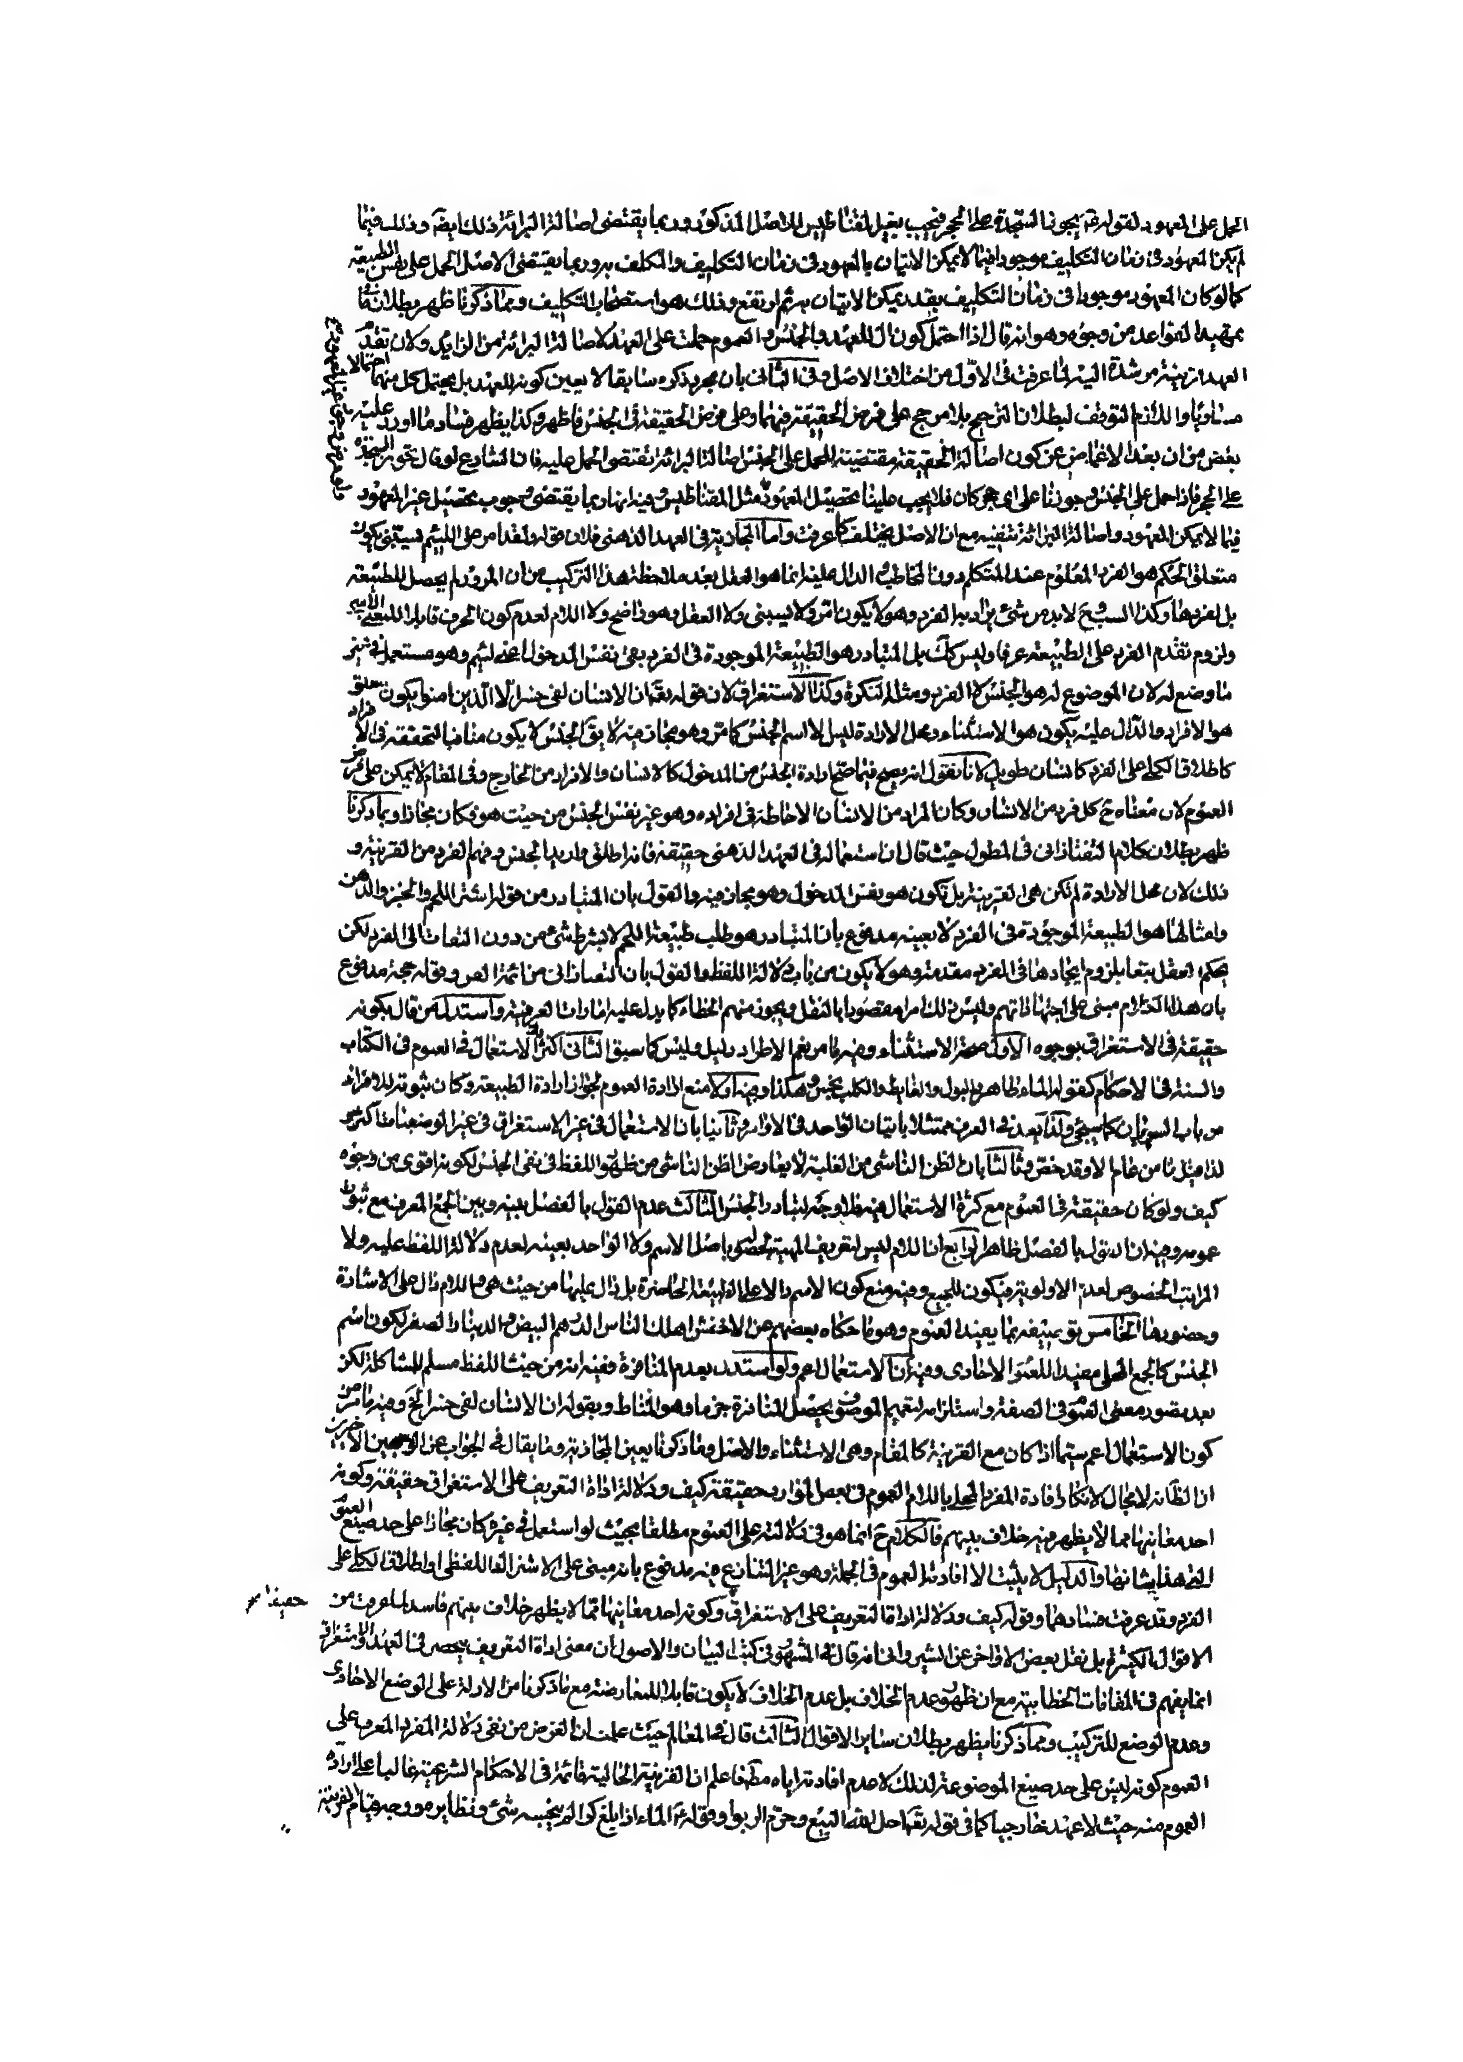 الحمل على المعهود لقوله يجوز السجدة على الحجر فيجب بغير المقناطيس للاصل المذكور وربما يقتضى اصالة البرائة ذلك ايضا وذلك فيما
لم يكن المعهود فى زمان التكليف موجودا فيما لا يمكن الاتيان بالمعهود فى زمان التكليف والمكلف به وربما يقتضى الاصل الحمل على نفس الطبيعة
كما لو كان المعهود موجودا فى زمان التكليف بقدر يمكن الاتيان به ثم ارتفع وذلك هو استصحاب التكليف ومما ذكرنا ظهر بطلان ما
بتمهيد القواعد من وجوه وهو انه قال اذا احتمل كون ال للعهد والجنس والعموم حملت على العهد لاصالة البرائة من الزايد ولان تقدم
العهد قرينة مرشدة اليه لما عرفت فى الاول من اختلاف الاصل وفى الثانى بان مجرد ذكره سابقا لا يعين كونه للعهد بل يحتمل كل منهما احتمالا
مساويا واللازم التوقف لبطلان الترجيح بلا مرجح على فرض الحقيقة فيهما وعلى فرض الحقيقة فى الجنس فاظهر وكذا يظهر فساد ما اورد عليه
بعض من ان بعد الاغماض عن كون اصالة الحقيقة مقتضية للحمل على الجنس اصالة البرائة تقتضى الحمل عليه فان الشارع لو قال تجوز السجدة
على الحجر فاذا حمل على الجنس وجوزنا على اى حجر كان فلا يجب علينا تحصيل المعهود مثل المقناطيس وفيه انها ربما يقتضى وجوب تحصيل غير المعهود
فيما لا يمكن المعهود واصالة البرائة تنفيه مع ان الاصل يختلف كما عرفت واما المجازية فى العهد الذهنى فلان قوله ولقد امر على اللئيم يسبنى يكون
متعلق الحكم هو الفرد المعلوم عند المتكلم دون المخاطب والدال عليه انما هو العقل بعد ملاحظة هذا التركيب من ان المرور لم يحصل للطبيعة
بل لفردها وكذا السب وح لا بد من شئ يراد به الفرد وهو لا يكون امر ولا يسبنى ولا العقل وهو واضح ولا اللام لعدم كون الحرف قابلا
ولزوم تقدم الفرد على الطبيعة عرفا وليس كك بل المتبادر هو الطبيعة الموجودة فى الفرد بقى نفس المدخول اعنى لئيم وهو مستعمل فى غير
ما وضع له لان الموضوع له هو الجنس لا الفرد ومثله النكرة وكذا الاستغراق لان قوله تعالى ان الانسان لفى خسر الا الذين امنوا يكون متعلق
هو الافراد والدال عليه يكون هو الاستثناء ومحل الارادة ليس الا اسم الجنس كما مر وهو مجاز فيه لا يق الجنس لا يكون منافيا لتحققه فى الافراد
كاطلاق الكلى على الفرد كانسان طويل لانا نقول انه يصح فيما صح ارادة الجنس من المدخول كالانسان والافراد من الخارج وفى المقام لا يمكن على فرض
العموم لان معناه ح كل فرد من الانسان وكان المراد من الانسان الاحاطة فى افراده وهو غير نفس الجنس من حيث هو فكان مجازا وبما ذكرنا
ظهر بطلان كلام التفتازانى فى المطول حيث قال ان استعماله فى العهد الذهنى حقيقة فانه اطلق واريد الجنس وفهم الفرد من القرينة و
ذلك لان محل الارادة لم تكن هى القرينة بل تكون هو نفس المدخول وهو مجاز فيه والقول بان المتبادر من قوله اشتر اللحم والخبز والدهن
وامثالها هو الطبيعة الموجودة فى الفرد لا بعينه مدفوع بان المتبادر هو طلب طبيعة اللحم لا بشرط شئ من دون التفات الى الفرد لكن
يحكم العقل تبعا بلزوم ايجادها فى الفرد مقدمة وهو لا يكون من باب دلالة اللفظ والقول بان التفتازانى من ائمة الفن وقوله حجة مدفوع
بان هذا الكلام مبنى على اجتهاداتهم وليس ذلك امرا مقصورا بالنقل ويجوز منهم الخطاء كما يدل عليه امارات العرفية واستدل من قال بكونه
حقيقة فى الاستغراق بوجوه الاول صحة الاستثناء وفيه ما مر نعم الاطراد دليل وليس كما سبق الثانى اكثرية الاستعمال فى العموم فى الكتاب
والسنة فى الاحكام كقوله الماء طاهر والبول والغايط والكلب نجس وهكذا وفيه اولا منع ارادة العموم لجواز ارادة الطبيعة وكان ثبوته للافراد
من باب السريان كما سيجئ ولذا يعد فى العرف ممتثلا باتيان الواحد فى الاوامر وثانيا بان الاستعمال فى غير الاستغراق فى غير الوضعيات اكثر
لذا قيل ما من عام الا وقد خص وثالثا بان الظن الناشى من الغلبة لا يعارض الظن الناشى من ظهور اللفظ فى نفى الجنس لكونه اقوى من وجوه
كيف ولو كان حقيقة فى العموم مع كثرة الاستعمال فيه فلا وجه لتبادر الجنس الثالث عدم القول بالفصل بينه وبين الجمع المعرف مع ثبوت
عمومه وفيه ان القول بالفصل ظاهر الرابع ان اللام ليس لتعريف المهية لحصوله باصل الاسم ولا الواحد بعينه لعدم دلالة اللفظ عليه ولا
المراتب الخصوص لعدم الاولوية فيكون للجميع وفيه منع كون الاسم دالا على الطبيعة الحاضرة بل دال عليها من حيث هى واللام دال على الاشارة
وحضورها الخامس توصيفه بما يفيد العموم وهو ما حكاه بعضهم عن الاخفش اهلك الناس الدرهم البيض والدينار الصفر لكون اسم
الجنس كالجمع المحلى مفيدا للعموم الافرادى وفيه ان الاستعمال اعم ولو استدل بعدم المنافرة ففيه انه من حيث اللفظ مسلم للمشاكلة لكن
بعد تصور معنى العموم فى الصفة واستلزامه لتعميم الموصوف يحصل المنافرة جزما وهو المناط وبقوله ان الانسان لفى خسر الخ وفيه ما مر من
كون الاستعمال اعم سيما اذا كان مع القرينة كالمقام وهى الاستثناء والاصل وما ذكرنا يعين المجازية وما يقال فى الجواب عن الوجهين الاخيرين
ان الظ انه لا مجال لانكار افادة المفرد المحلى باللام العموم فى بعض الموارد حقيقة كيف ودلالة اداة التعريف على الاستغراق حقيقة وكونه
احد معانيها مما لا يظهر فيه خلاف بينهم فالكلام ح انما هو فى دلالته على العموم مطلقا بحيث لو استعمل فى غيره كان مجازا على حد صيغ العموم
التى هذا شانها والدليل لا يثبت الا افادته العموم فى الجملة وهو غير المتنازع فيه مدفوع بانه مبنى على الاشتراك اللفظى او اطلاق الكلى على
الفرد وقد عرفت فسادهما وقوله كيف ودلالة اداة التعريف على الاستغراق وكونه احد معانيها مما لا يظهر خلاف بينهم فاسد لما عرفت من
الاقوال الكثيرة بل نقل بعض الاواخر عن الشيروانى انه قال المشهور فى كتب البيان والاصول ان معنى اداة التعريف ينحصر فى العهد والاستغراق
انما يفهم فى المقامات الخطابية مع ان ظهور عدم الخلاف بل عدم الخلاف لا يكون قابلا للمعارضة مع ما ذكرنا من الادلة على الوضع الافرادى
وعدم الوضع للتركيب ومما ذكرنا يظهر بطلان ساير الاقوال الثالث قال فى المعالم حيث علمت ان الغرض من نفى دلالة المفرد المعرف على
العموم كونه ليس على حد صيغ الموضوعة لذلك لا عدم افادته اياه مطلقا فاعلم ان القرينة الحالية قائمة فى الاحكام الشرعية غالبا على ارادة
العموم منه حيث لا عهد خارجيا كما فى قوله تعالى احل الله البيع وحرم الربوا وقوله ع الماء اذا بلغ كرا لم ينجسه شئ ونظايره ووجه قيام القرينة